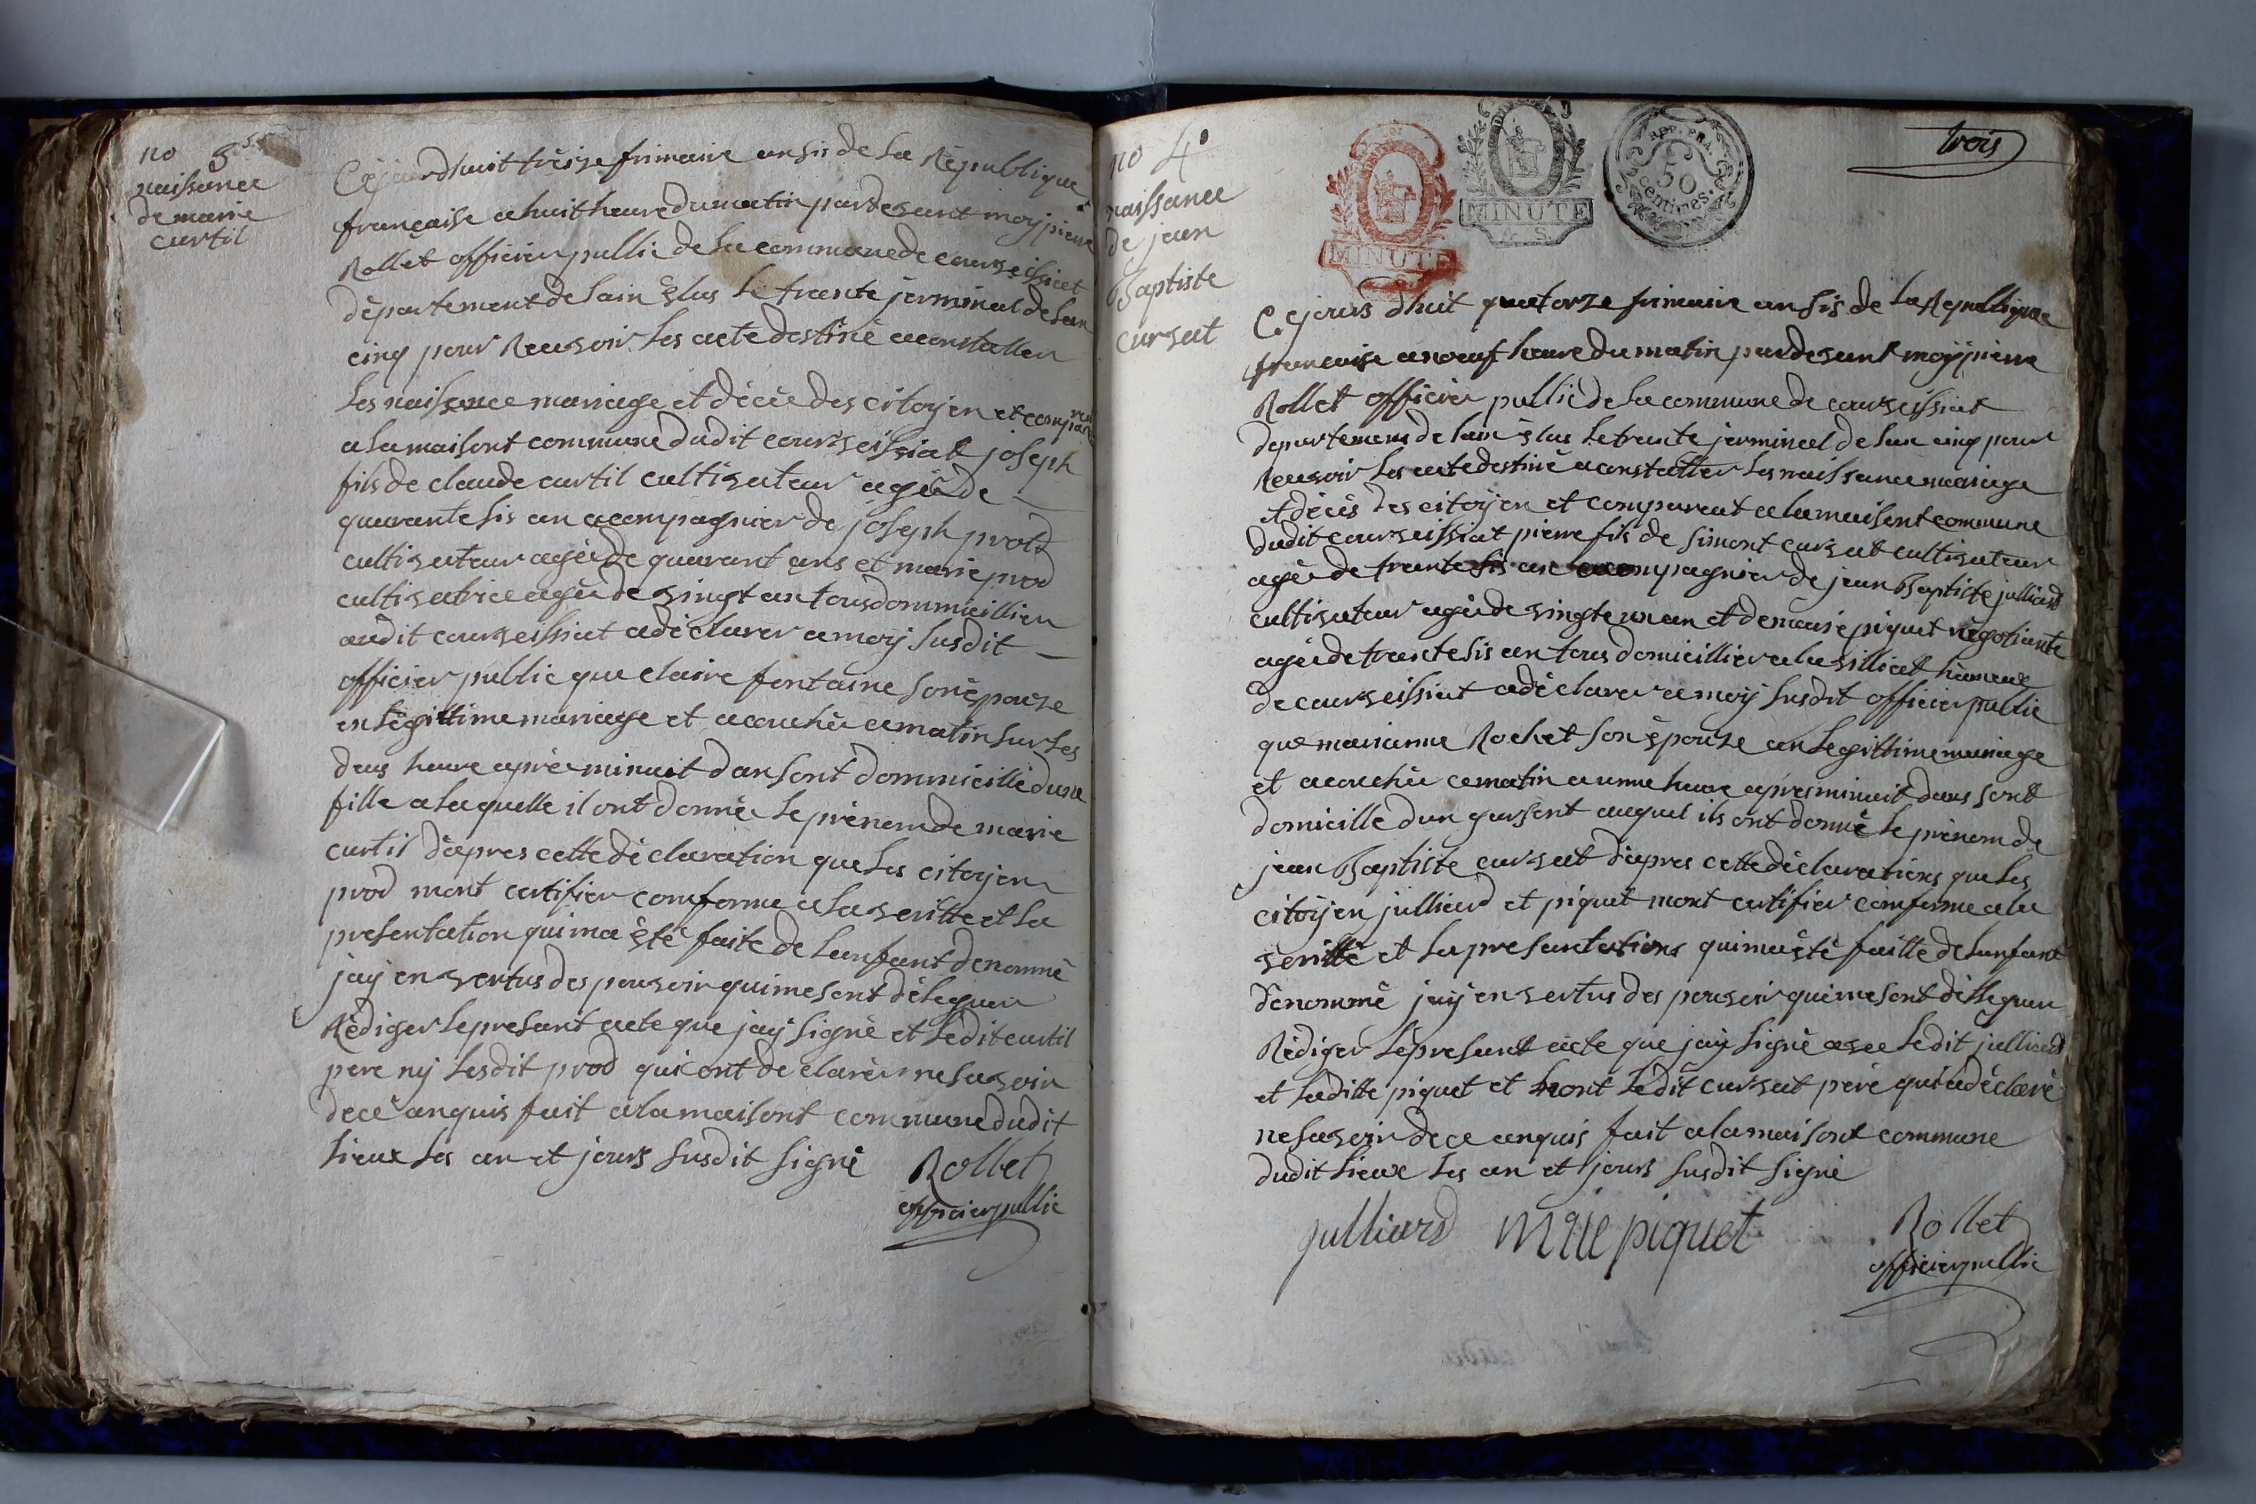 no 3
naissance
de marie
curtil
Cejourdhuit trèize frimaire an sis de La Rèpublique
française a huit heure du matin pardevant moy pierre
Rollet officier public de La commune de courseissiat
dèpartement de Lain èlus Le trante jerminal de Lan
cinq pour Recevoir Les acte destinè a constatter
Les naissance mariage et dècès des citoyen et comparu
a La maisont commune dudit courseissiat joseph
fils de claude curtil cultivateur agèe de
quarante sis an acompagnier de joseph prost
cultivateur agèe de quarant ans et marie prod
cultivatrice agèe de vingt an tous dommicillier
audit courseissiat a dèclarer a moy susdit
officier public que claire fontaine son èpouze
en Lègittime mariage et acouchèe ce matin sur Les
deus heure après minuit dans sont dommicille dune
fille a Laquelle il ont donnè Le prènom de marie
curtil dàpres cette dèclaration que Les citoyen
prod mont certifier conforme a La veritte et La
presentation qui ma ètè faite de Lanfant denommè
jay en vertus des pouvoir qui me sont dèleguer
Rèdiger Le present acte que jay signè et Ledit curtil
pere ny Lesdit prod qui ont declarèe ne savoir
decè anquis fait a La maisont commune dudit
Lieux Les an et jours susdit signè Rollet
officier public
trois
MINUTE
MINUTE
REP. FRA.
50
centimes.
no 4
naissance
de jean
Baptiste
cursat
Cejours dhuit quatorze frimaire an sis de La Republique
francaise a neuf heure du matin pardevant moy pierre
Rollet officier public de La commune de courseissiat
departement de Lain èlus Le trante jerminal de Lan cinq pour
Recevoir Les acte destinè a constatter Les naissance mariage
et dècès des citoyen et comparut a La maisont commune
dudit courseissiat pierre fils de simont cursat cultivateur
agèe de trante sis an acompagnier de jean Baptiste julliard
cultivateur agèe de vingte un an et de marie piquet nègotiante
agèe de trante sis an tous domicillier a La villiat hameux
de courseissiat a dèclarer a moy susdit officier public
que marianne Rochet son èpouze an Legittime mariage
et acouchèe ce matin a unne heure apres minuit dans sont
domicille dun garsont auquel ils ont donnè Le prènom de
jean Baptiste cursat dàpres cette dèclarations que Les
citoyen julliard et piquet mont certifier conforme a La
veritte et La presantations qui ma ètè faitte de Lanfant
dènommè jay en vertus des pouvoir qui me sont dèlleguer
Rèdiger Le present acte que jay signè avec Ledit julliard
et Laditte piquet et nont Ledit cursat père qui a dèclarè
ne savoir de ce anquis fait a La maisont commune
dudit Lieux Les an et jours susdit signè
julliard mrie piquet Rollet
officier public